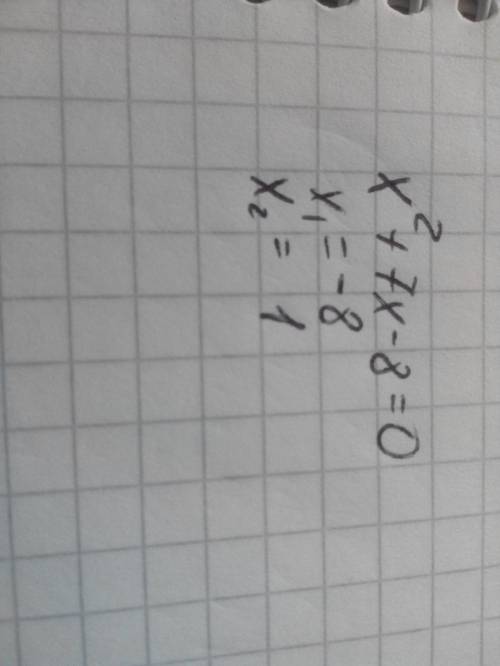 x² + 7x - 8 = 0
x₁ = -8
x₂ = 1